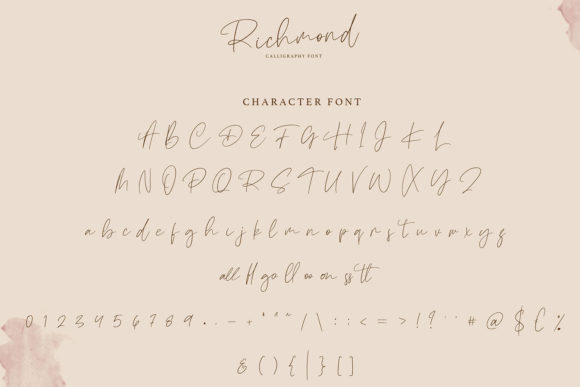 Richmond
CALLIGRAPHY FONT
CHARACTER FONT
A B C D E F G H I J K L
M N O P Q R S T U V W X Y Z
a b c d e f g h i j k l m n o p q r s t u v w x y z
all ff go ll oo on ss tt
0 1 2 3 4 5 6 7 8 9 . . – + * " " / \ : : < = > ! ? ¨ # @ $ € %
& ( ) { | } [ ]